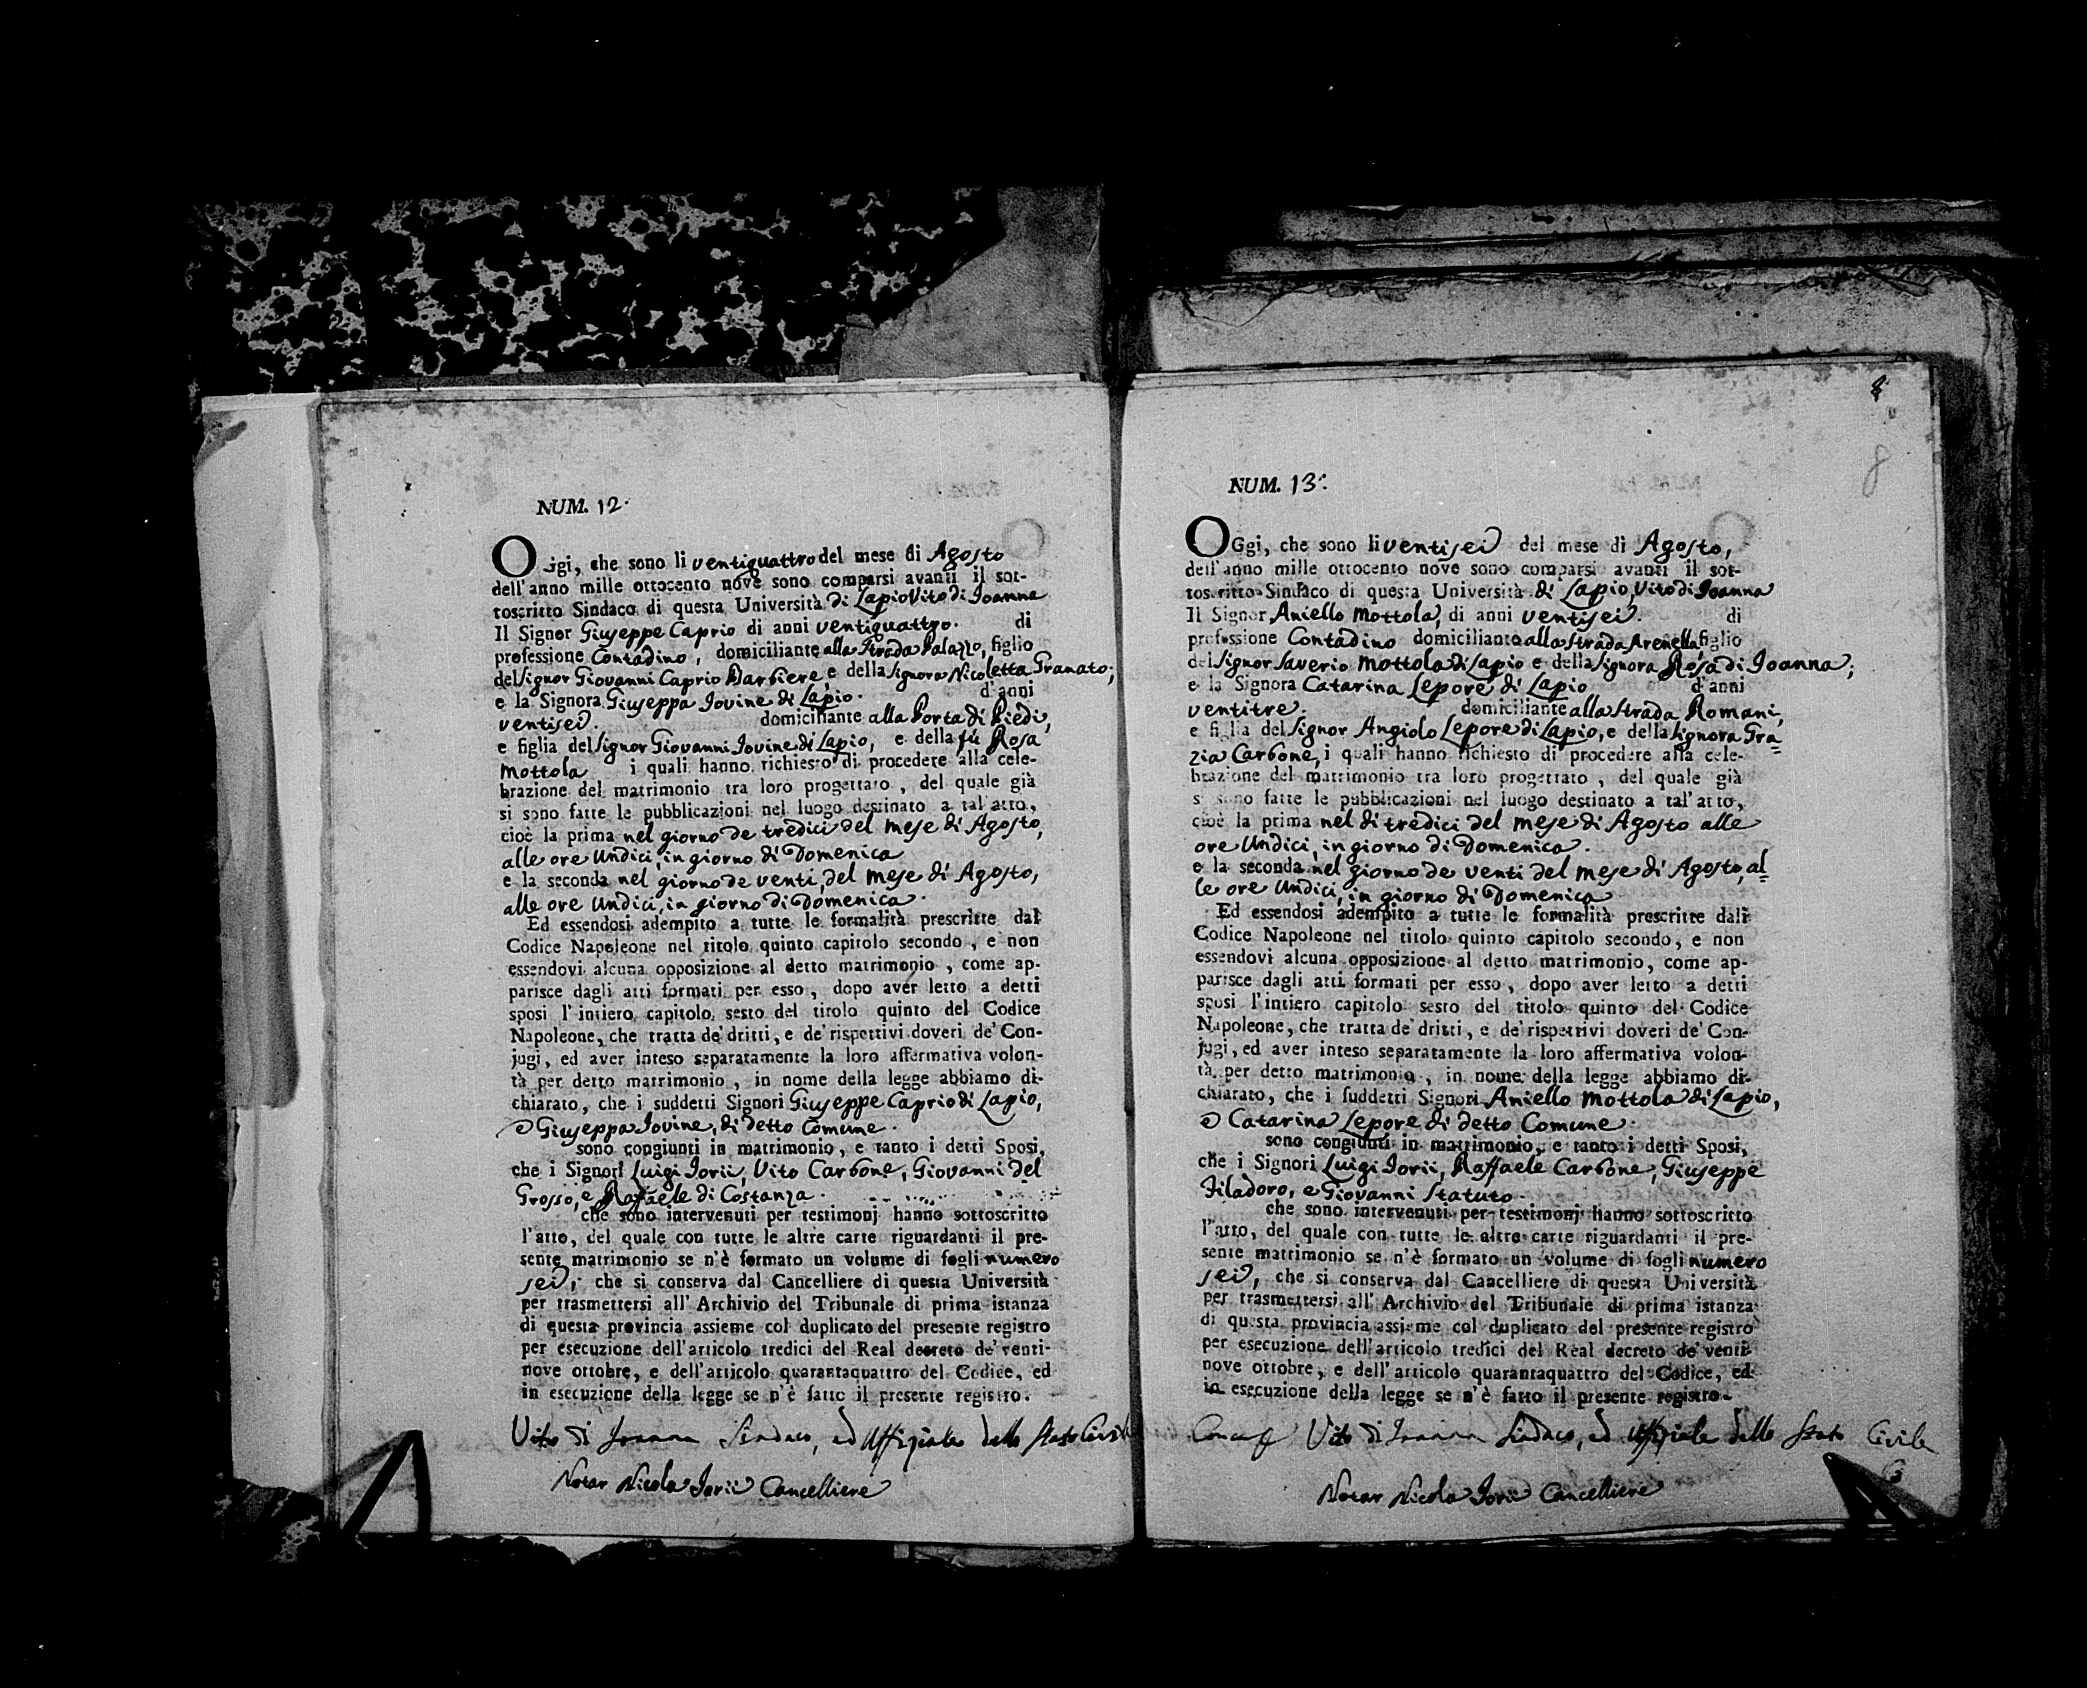 NUM. 12.
Oggi, che sono li ventiquattro del mese di Agosto
dell'anno mille ottocento nove sono comparsi avanti il sot-
toscritto Sindaco di questa Università di Lapio Vito di Ioanna
Il Signor Giuseppe Caprio di anni ventiquattro. di
professione Contadino, domiciliante alla Strada Palazzo, figlio
del Signor Giovanni Caprio Barbiere e della Signora Nicoletta Granato;
e la Signora Giuseppa Iovine di Lapio. d'anni
ventisei domiciliante alla Porta di Piedi,
e figlia del Signor Giovanni Iovine di Lapio, e della fù Rosa
Mottola i quali hanno richiesto di procedere alla cele-
brazione del matrimonio tra loro progettato, del quale già
si sono fatte le pubblicazioni nel luogo destinato a tal'atto,
cioè la prima nel giorno de tredici del mese di Agosto,
alle ore Undici, in giorno di Domenica
e la seconda nel giorno de venti, del mese di Agosto,
alle ore Undici, in giorno di Domenica.
Ed essendosi adempito a tutte le formalità prescritte dal
Codice Napoleone nel titolo quinto capitolo secondo, e non
essendovi alcuna opposizione al detto matrimonio, come ap-
parisce dagli atti formati per esso, dopo aver letto a detti
sposi l'intiero capitolo sesto del titolo quinto del Codice
Napoleone, che tratta de' dritti, e de' rispettivi doveri de' Con-
jugi, ed aver inteso separatamente la loro affermativa volon-
tà per detto matrimonio, in nome della legge abbiamo di-
chiarato, che i suddetti Signori Giuseppe Caprio di Lapio,
e Giuseppa Iovine, di detto Comune.
sono congiunti in matrimonio, e tanto i detti Sposi,
che i Signori Luigi Iorii, Vito Carbone, Giovanni del
Grosso, e Raffaele di Costanza.
che sono intervenuti per testimonj hanno sottoscritto
l'atto, del quale con tutte le altre carte riguardanti il pre-
sente matrimonio se n'è formato un volume di fogli numero
sei, che si conserva dal Cancelliere di questa Università
per trasmettersi all' Archivio del Tribunale di prima istanza
di questa provincia assieme col duplicato del presente registro
per esecuzione dell'articolo tredici del Real decreto de' venti-
nove ottobre, e dell'articolo quarantaquattro del Codice, ed
in esecuzione della legge se n'è fatto il presente registro.
Vito di Ioanna Sindaco, ed Uffiziale dello Stato Civile
Notar Nicola Iorii Cancelliere
8
8
NUM. 13.
OGgi, che sono li ventisei del mese di Agosto,
dell'anno mille ottocento nove sono comparsi avanti il sot-
toscritto Sindaco di questa Università di Lapio, Vito di Ioanna
Il Signor Aniello Mottola, di anni ventisei. di
professione Contadino domiciliante alla Strada Arenella figlio
del Signor Saverio Mottola di Lapio e della Signora Rosa di Ioanna;
e la Signora Catarina Lepore di Lapio d'anni
ventitre. domiciliante alla Strada Romani,
e figlia del Signor Angiolo Lepore di Lapio, e della Signora Gra=
zia Carbone, i quali hanno richiesto di procedere alla cele-
brazione del matrimonio tra loro progettato, del quale già
si sono fatte le pubblicazioni nel luogo destinato a tal'atto,
cioè la prima nel di tredici del mese di Agosto alle
ore Undici, in giorno di Domenica.
e la seconda nel giorno de venti del mese di Agosto, al=
le ore Undici, in giorno di Domenica
Ed essendosi adempito a tutte le formalità prescritte dall
Codice Napoleone nel titolo quinto capitolo secondo, e non
essendovi alcuna opposizione al detto matrimonio, come ap-
parisce dagli atti formati per esso, dopo aver letto a detti
sposi l'intiero capitolo sesto del titolo quinto del Codice
Napoleone, che tratta de' dritti, e de' rispettivi doveri de' Con-
jugi, ed aver inteso separatamente la loro affermativa volon-
tà per detto matrimonio, in nome della legge abbiamo di-
chiarato, che i suddetti Signori Aniello Mottola di Lapio,
e Catarina Lepore di detto Comune.
sono congiunti in matrimonio, e tanto i detti Sposi,
che i Signori Luigi Iorii, Raffaele Carbone, Giuseppe
Filadoro, e Giovanni Statuto.
che sono intervenuti per testimonj hanno sottoscritto
l'atto, del quale con tutte le altre carte riguardanti il pre-
sente matrimonio se n'è formato un volume di fogli numero
sei, che si conserva dal Cancelliere di questa Università
per trasmettersi all' Archivio del Tribunale di prima istanza
di questa provincia assieme col duplicato del presente registro
per esecuzione dell'articolo tredici del Real decreto de' venti-
nove ottobre, e dell'articolo quarantaquattro del Codice, ed
in esecuzione della legge se n'è fatto il presente registro.
Vito di Ioanna Sindaco, ed Uffiziale dello Stato Civile
Notar Nicola Iorii Cancelliere